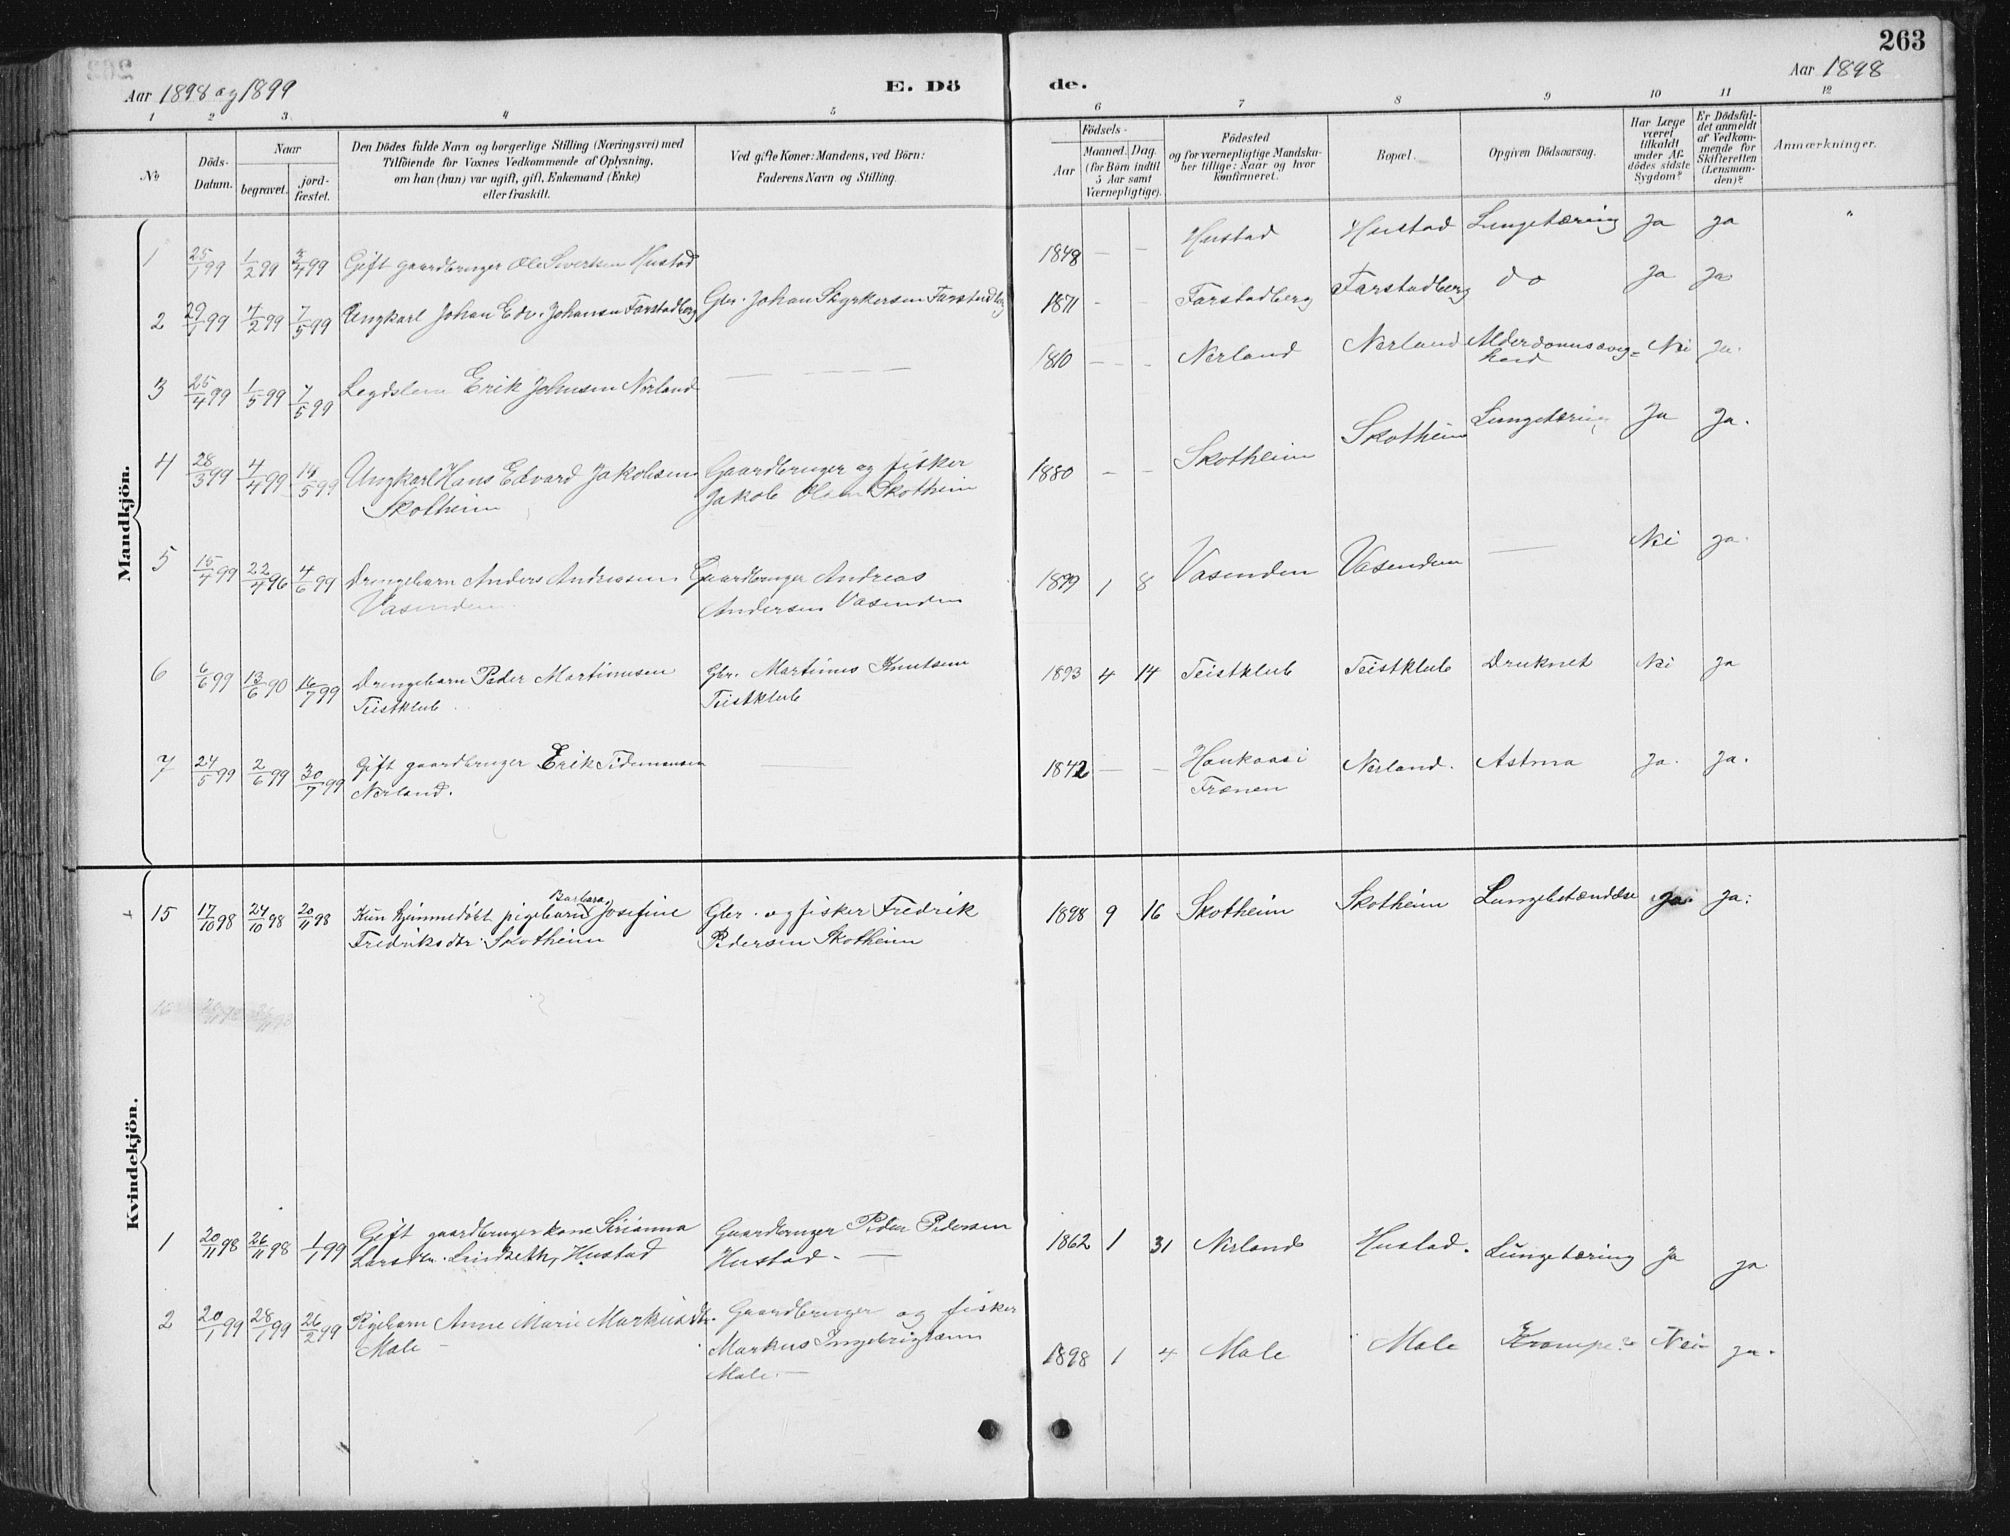 263
Aar 1898 og 1899
E. Dö
de.
Aar 1898
1 2 3 4 5 6 7 8 9 10 11 12
No
Döds-Datum.
Naar
begravet.
jord-fæstet.
Den Dödes fulde Navn og borgerlige Stilling (Næringsvei) med
Tilföiende for Voxnes Vedkommende af Oplysning,
om han (hun) var ugift, gift, Enkemand (Enke)
eller fraskilt.
Ved gifte Koner: Mandens, ved Börn:
Faderens Navn og Stilling.
Födsels-
Aar
Maaned. Dag.
(for Börn indtil
5 Aar samt
Værnepligtige).
Födested
og for værnepligtige Mandska-
ber tillige: Naar og hvor
konfirmeret.
Bopæl.
Opgiven Dödsaarsag.
Har Læge
været
tilkaldt
under Af-
dödes sidste
Sygdom?
Er Dödsfal-
det anmeldt
af Vedkom-
mende for
Skifteretten
(Lensman-
den)?
Anmærkninger.
Mandkjön.
1 25/1 99 1/2 99 3/4 99 Gift gaardbruger Ole Sivertsen Hustad 1848 — — Hustad Hustad Lungetæring Ja ja "
2 29/1 99 4/2 99 7/5 99 Ungkarl Johan Edv. Johansen Farstadberg Gbr. Johan Styrkersen Farstadberg 1871 - - Farstadberg Farstadberg do Ja Ja
3 25/4 99 1/5 99 7/5 99 Legdslem Erik Johnsen Nerland — — — — 1810 — - - Nerland Nerland Alderdomssvag-
hed Nei Ja.
4 28/3 99 4/4 99 14/5 99 Ungkarl Hans Edvard Jakobsen Gaardbruger og fisker 1880 - - Skotheim Skotheim Lungetæring Ja Ja.
Skotheim Jakob Olsen Skotheim
5 15/4 99 22/4 96 4/6 99 Drengebarn Anders Andreasen Gaardbruger Andreas 1899 1 8 Vasenden Vasenden — Nei ja.
Vasenden Andersen Vasenden
6 6/6 99 13/6 90 16/7 99 Drengebarn Peder Martinusen Gbr. Martinus Knutsen 1893 4 14 Teistklub Teistklub Druknet Nei ja
Teistklub Teistklub
7 24/5 99 2/6 99 30/7 99 Gift gaardbruger Erik Tidemansen — 1842 — — Haukaas i Nerland. Astma ja. ja.
Nerland. Frænen
Kvindekjön.
15 17/10 98 24/10 98 20/11 98 Kun hjemmedöbt pigebarn Barbara Josefine Gbr. og fisker Fredrik 1898 9 16 Skotheim Skotheim Lungebetændelse Ja Ja.
Fredriksdtr. Skotheim Pedersen Skotheim
1 20/11 98 26/11 98 1/1 99 Gift gaardbrugerkone Sirianna Gaardbruger Peder Pedersen 1862 1 31 Nerland Hustad. Lungetæring Ja ja
Larsdtr. Hustad Hustad. —
2 20/1 99 28/1 99 26/2 99 Pigebarn Anne Marie Markusdtr. Gaardbruger og fisker 1898 1 4 Male Male Krampe? Nei ja.
Male - Markus Ingebrigtsen
Male. —